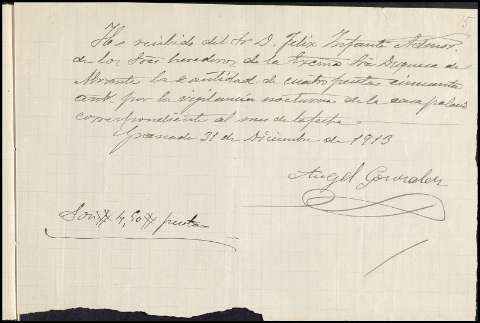 15
He recibido del Sr D. Felix Infante Admor.
de los Sres herederos de la Excma Sra Duquesa de
Abrante la cantidad de cuatro pesetas cincuenta
cent. por la vigilancia nocturna de la casa palacio
correspondiente al mes de la fecha.
Granada 31 de Diciembre de 1913
Angel Gonzalez
Son 4,50 pesetas